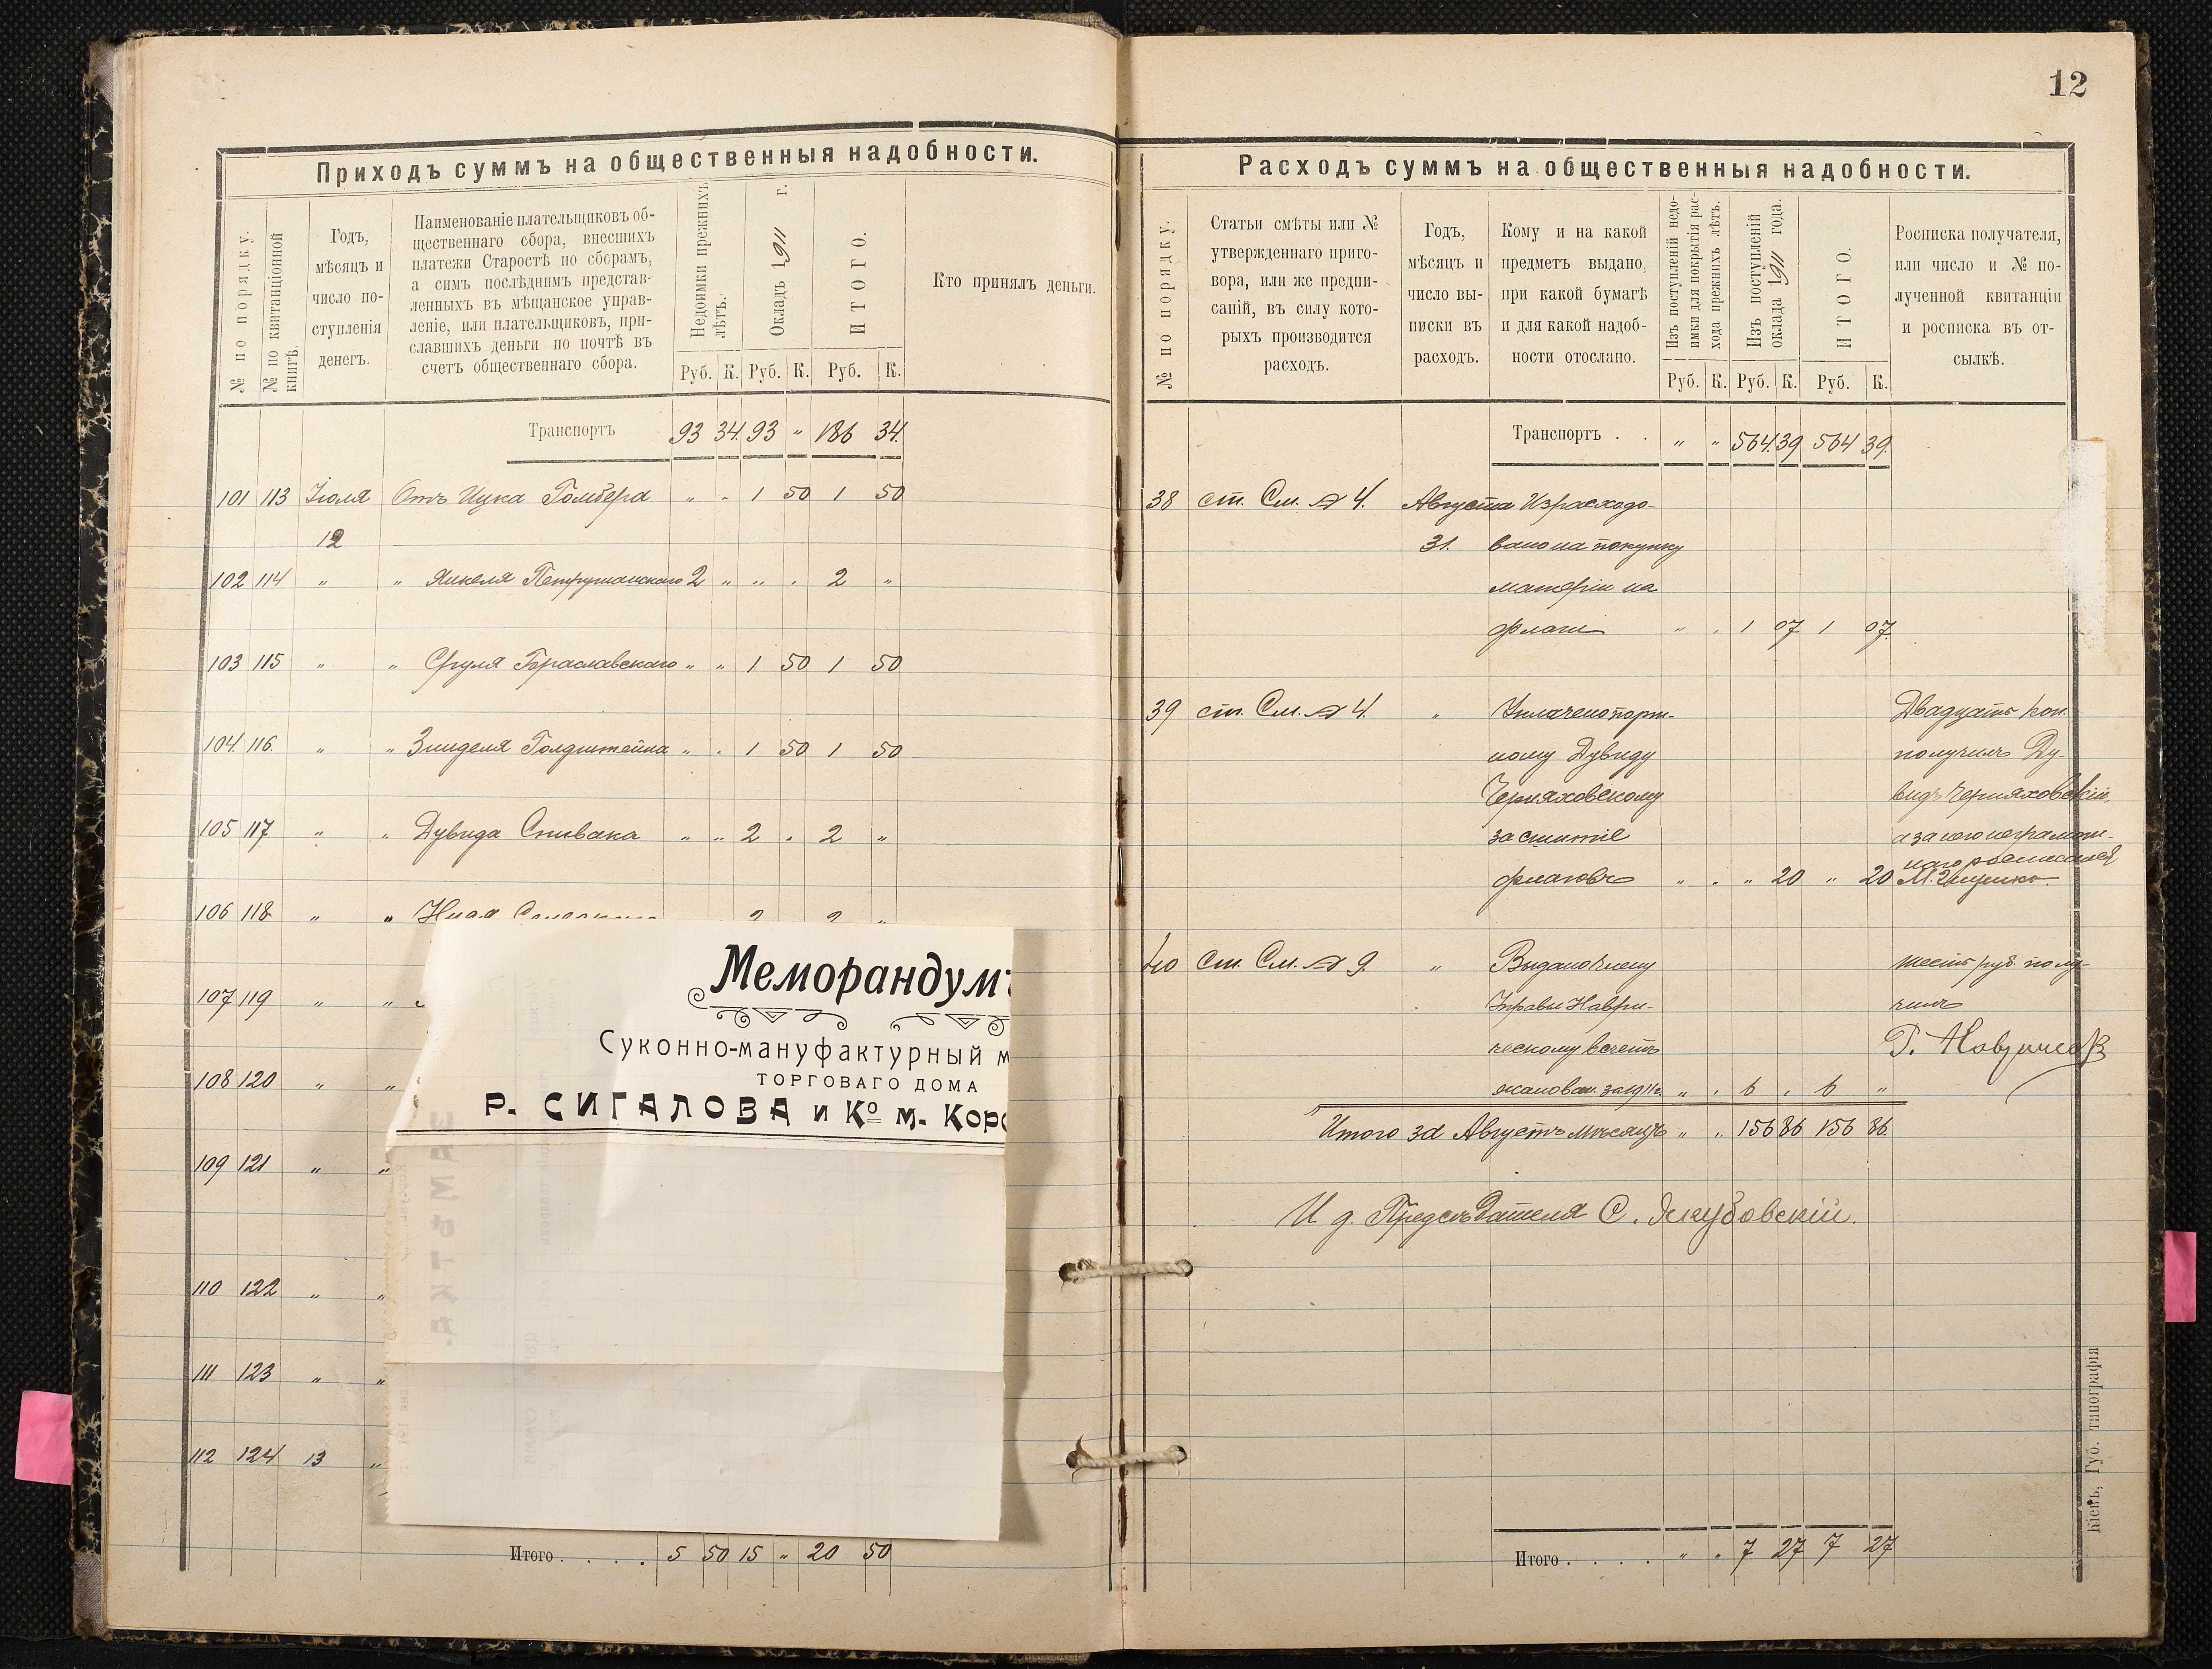 12
Приходъ суммъ на общественныя надобности.
№ по порядку.
№ по квитанціонной книгѣ.
Годъ,
мѣсяцъ и
число по-
ступленія
денегъ.
Наименованіе плательщиковъ об-
щественнаго сбора, внесшихъ
платежи Старостѣ по сборамъ,
а симъ послѣднимъ представ-
ленныхъ въ мѣщанское управ-
леніе, или плательщиковъ, при-
славшихъ деньги по почтѣ въ
счетъ общественнаго сбора.
Недоимки прежнихъ
лѣтъ.
Окладъ 1911 г.
ИТОГО.
Кто принялъ деньги.
Руб. К. Руб. К. Руб. К.
Транспортъ 93 34. 93 " 186 34.
101 113 Іюля Отъ Ицка Гомберга " " 1 50 1 50
12
102 114 " " Янкеля Петрушанскаго 2 " " " 2 "
103 115 " " Сруля Браславскаго " " 1 50 1 50
104. 116. " " Зинделя Голдштейна " " 1 50 1 50
105 117 " " Дувида Спивака " " 2 " 2 "
106 118 " "
107 119 " "
108 120 " "
109 121 " "
110 122 " "
111 123 " "
112 124 13 "
Итого . . . . 5 50 15 " 20 50
Меморандумъ
Суконно-мануфактурный м
ТОРГОВАГО ДОМА
Р. СИГАЛОВА и Ко м. Корс
Расходъ суммъ на общественныя надобности.
№ по порядку.
Статьи смѣты или №
утвержденнаго приго-
вора, или же предпи-
саній, въ силу кото-
рыхъ производится
расходъ.
Годъ,
мѣсяцъ и
число вы-
писки въ
расходъ.
Кому и на какой
предметъ выдано,
при какой бумагѣ
и для какой надоб-
ности отослано.
Изъ поступленій недо-
имки для покрытія рас-
хода прежнихъ лѣтъ.
Изъ поступленій
оклада 1911 года.
ИТОГО.
Росписка получателя,
или число и № по-
лученной квитанціи
и росписка въ от-
сылкѣ.
Руб. К. Руб. К. Руб. К.
Транспортъ . . " " 564. 39 564 39.
38 ст. См. № 4. Августа Израсходо-
31. вано на покупку
матеріи на
флаги " " 1 07 1 07.
39 ст. См. № 4. " Уплачено порт- Двадцать коп.
ному Дувиду получилъ Ду-
Черняховскому видъ Черняховскій,
за сшитіе а за него неграмот-
наго росписался
флаговъ " " " 20 " 20
40 ст. См. № 9. " Выдано Члену шесть руб. полу-
Управы Наври- чилъ
ческому въ счетъ
жалован. за 1911 г. " " 6 " 6 "
Итого за Августъ мѣсяцъ " " 156 86 156 86.
И д. Предсѣдателя С. Якубовскій.
Итого . . . . " " 7 27 7 27
Кіевъ, Губ. типографія